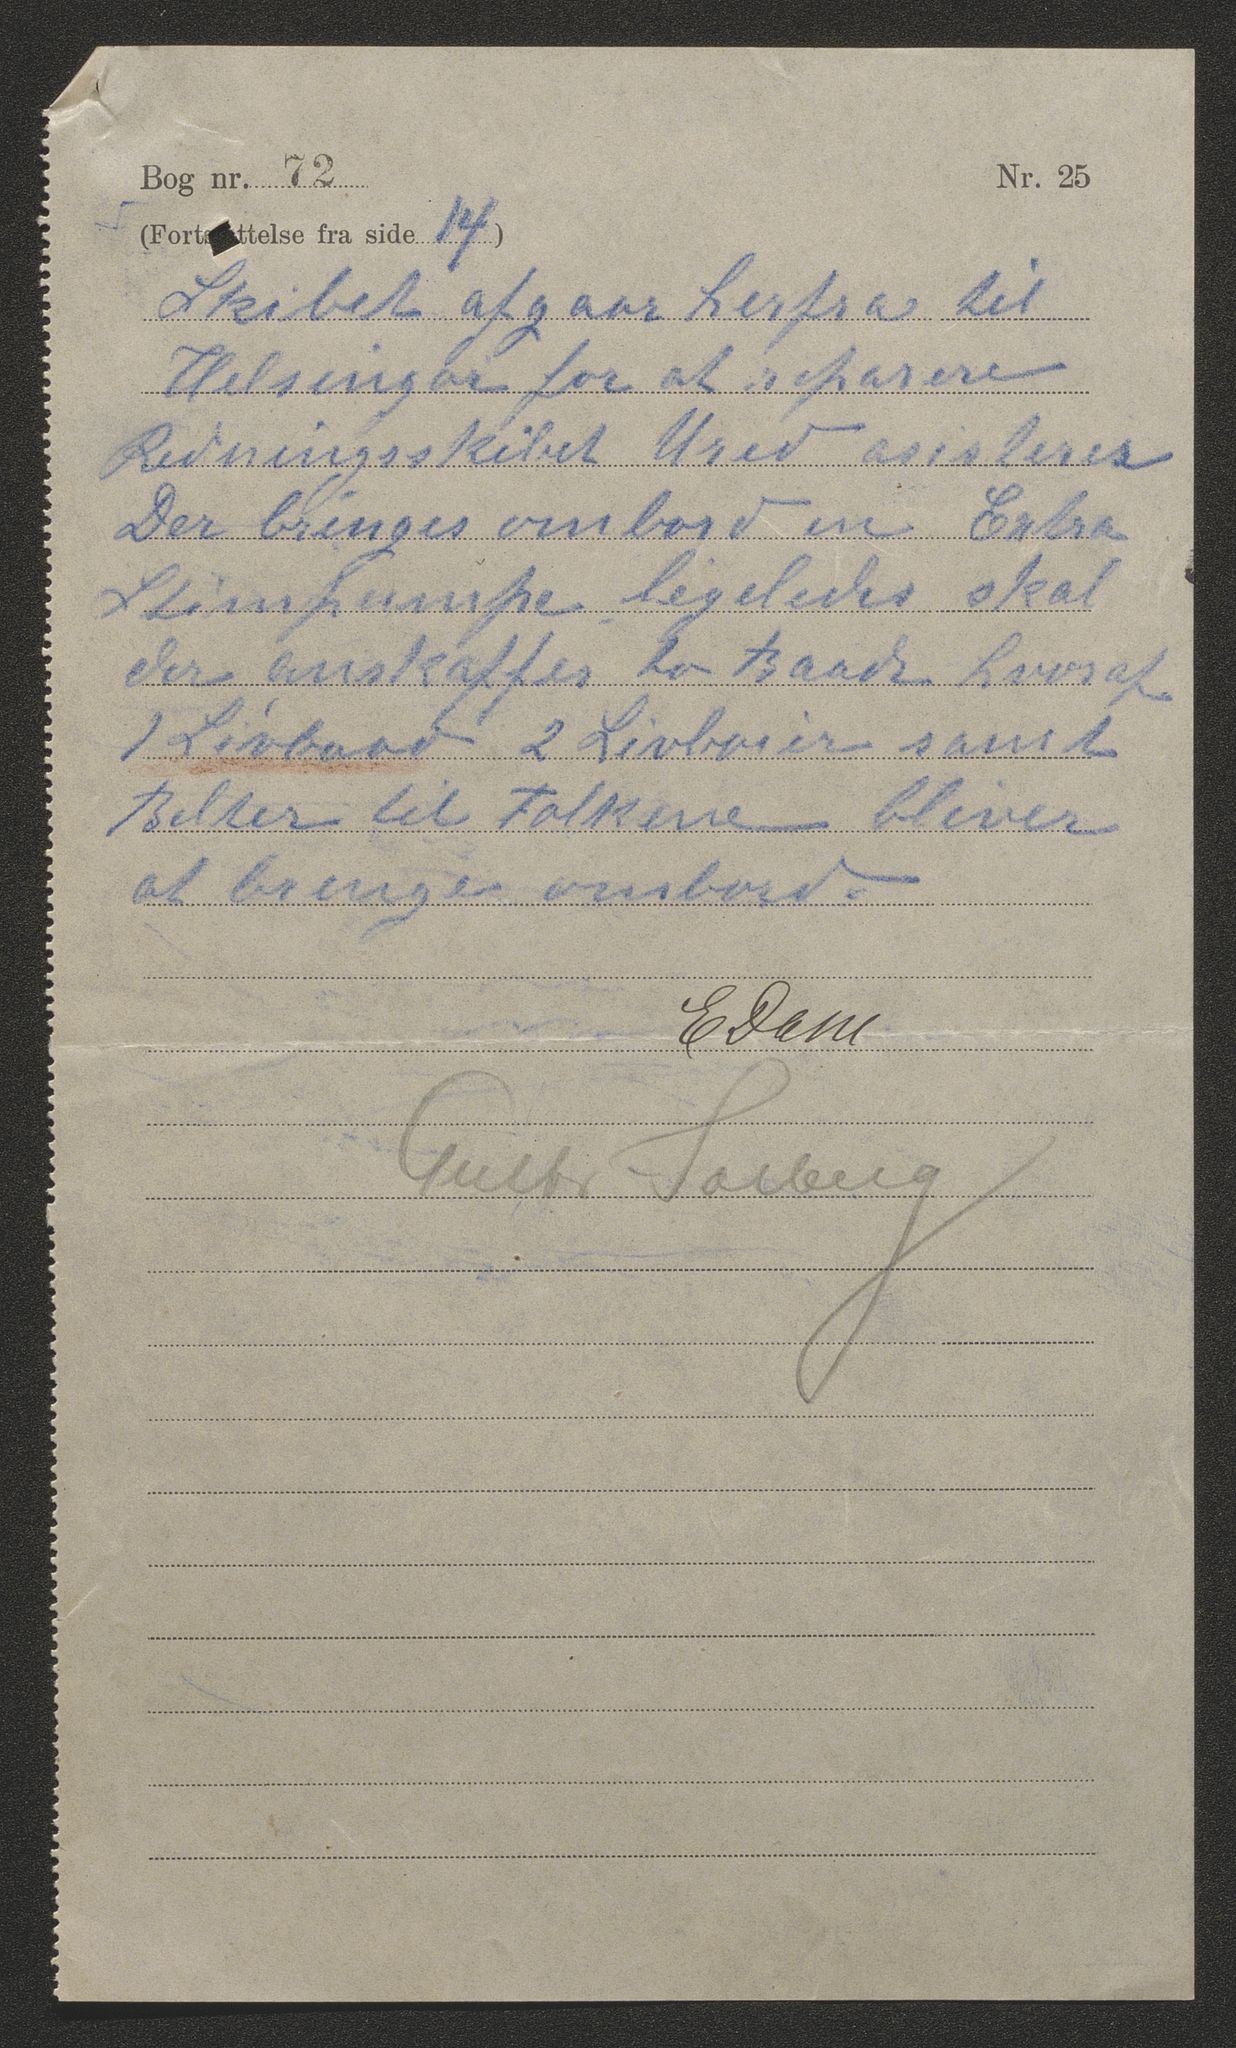 Bog nr. 72
Nr. 25
(Fortsættelse fra side 14)
Skibet afgaar herfra til
Helsingør for at reparere
Redningsskibet Ured asisterer
Der bringes ombord en Extra
Stimpumpe ligeledes skal
der anskaffes to Baade hvoraf
1 Livbaad 2 Livboier samt
Belter til Folkene bliver
at bringe ombord.
E Dam
Solberg